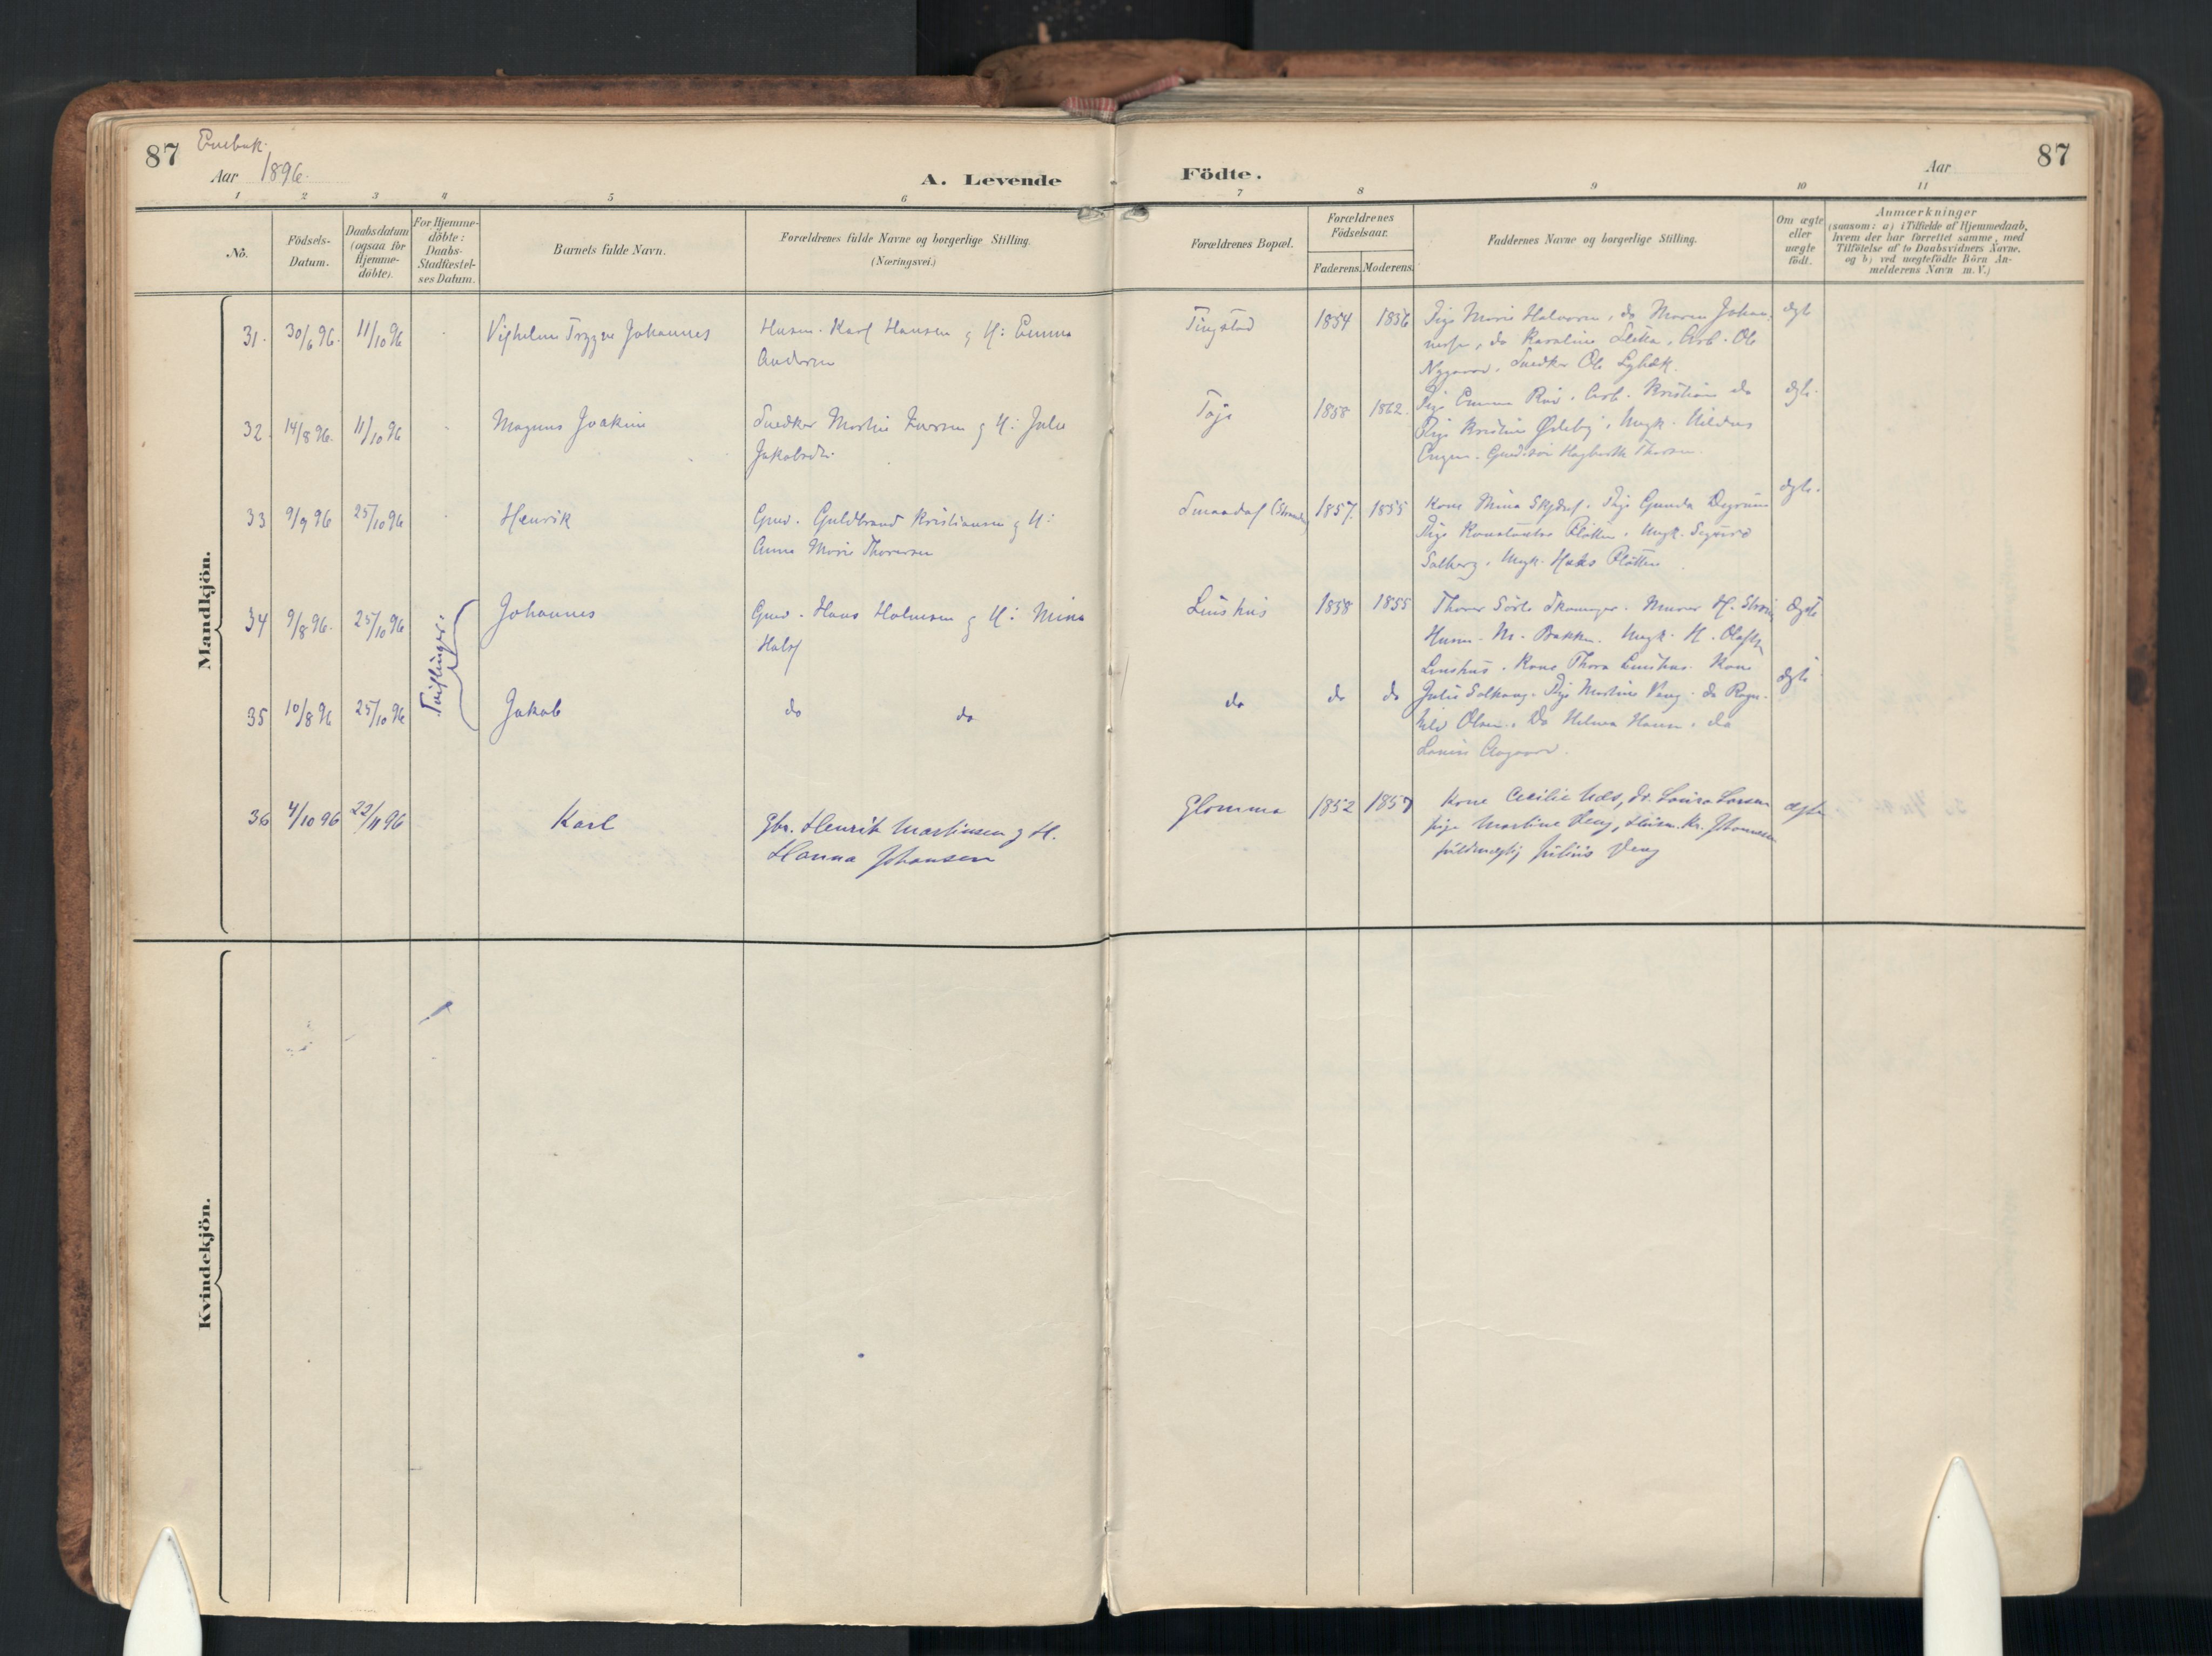 87 Enebak. 87
Aar 1896. A. Levende Födte. Aar
1 2 3 4 5 6 7 8 9 10 11
No.
Födsels-
Datum.
Daabsdatum
(ogsaa for
Hjemme-
döbte).
For Hjemme-
döbte:
Daabs-
Stadfæstel-
ses Datum.
Barnets fulde Navn.
Forældrenes fulde Navne og borgerlige Stilling.
(Næringsvei.)
Forældrenes Bopæl.
Forældrenes
Födselsaar.
Faderens. Moderens.
Faddernes Navne og borgerlige Stilling.
Om ægte
eller
uægte
födt.
Anmærkninger
(saasom: a) i Tilfælde af Hjemmedaab,
hvem der har forrettet samme, med
Tilföielse af to Daabsvidners Navne,
og b) ved uægtefödte Börn An-
melderens Navn m. V.)
Mandkjön.
31. 30/6 96. 11/10 96 Vilhelm Trygve Johannes
Husm. Karl Hansen g H: Emma
Andersen
Tingstad 1854 1856
Pige Marie Halvorsen, do Maren Johan-
nesen, do Karoline, Arb. Ole
Nygaard, Snedker Ole
ægte
32. 14/8 96. 11/10 96 Magnus Joakim
Snedker Martin Iversen g H: Julie
Jakobsdtr.
Töie 1858 1862.
Pige Emma, Arb. Kristian do
Pige Kristine Ödeby, Ungk. Hildus
Engen. Hagbarth Thorsen
ægte.
33 9/9 96 25/10 96 Henrik
Gmd. Guldbrand Kristiansen g H:
Anna Marie Thoresen
1857. 1855
Kone Mina, Pige Gunda
Pige, Ungk. Sigurd
Solberg, Ungk.
ægte.
34 9/8 96. 25/10 96 Tvillinger. Johannes
Gmd. Hans Halvorsen g H: Mina
1858 1855
Thorer Sörli. Murer H.
Husm. M. Bakken. Ungk. H. Olafsen
Kone Thora. Kone
ægte
35 10/8 96 25/10 96 Jakob
do do
do do do
Julie Solhaug. Pige Martine Veng. do Ragn-
hild Olsen. Do Helma Hansen, do
Lovise Aagaard.
ægte
36 4/10 96 22/11 96 Karl
Gbr. Henrik Martinsen g H.
Hanna Johansen
Glomma 1852 1857
Kone Cecilie, do. Lovisa Larsen
pige Martine Veng, Husm. Kr. Johannesen
fuldmægtig Julius Veng
ægte
Kvindekjön.